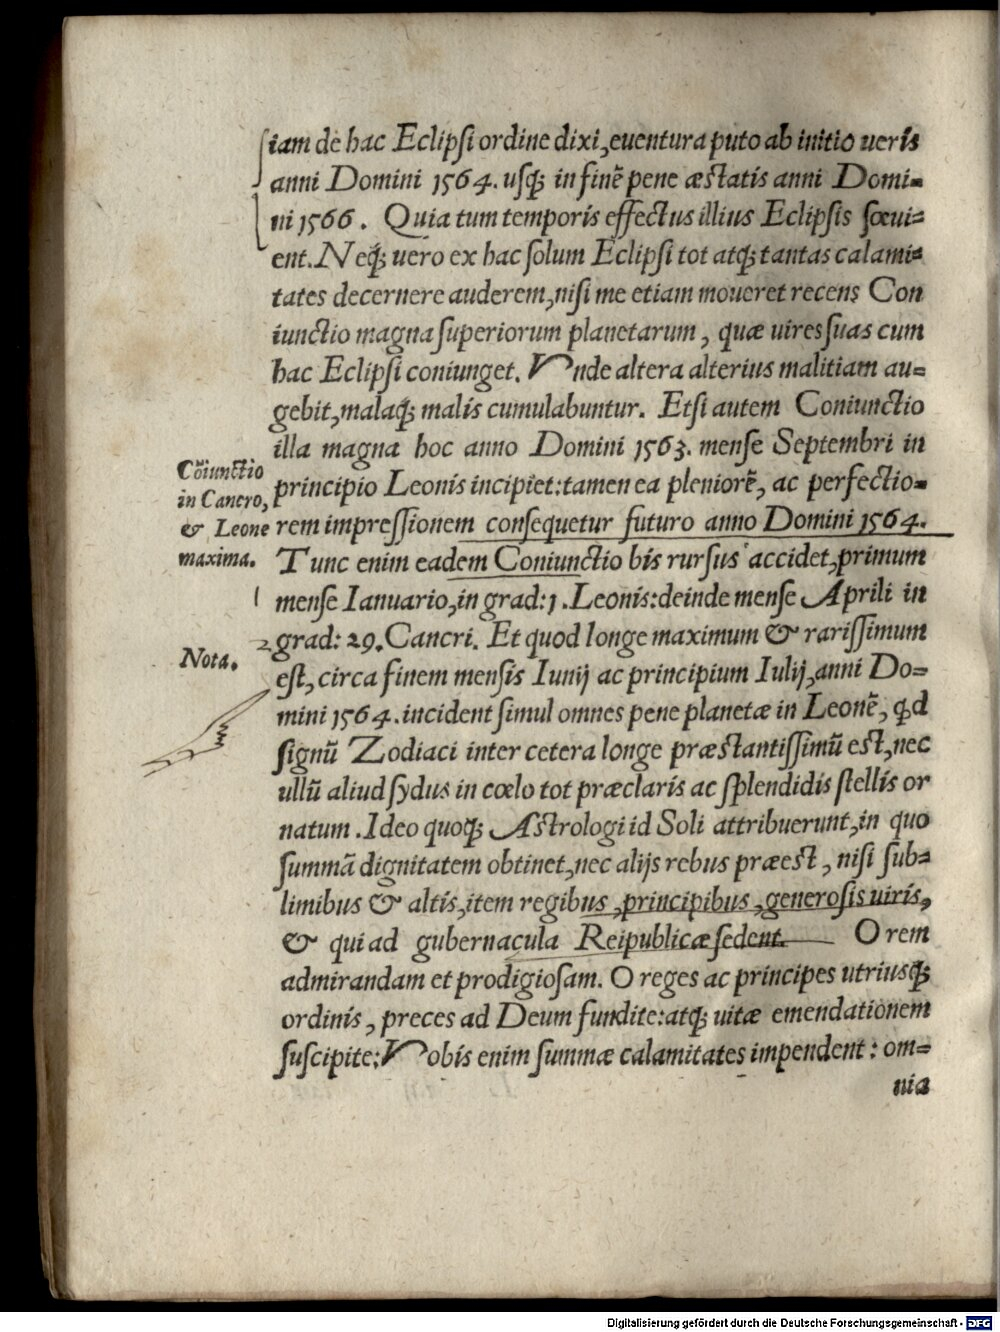 iam de hac Eclipſi ordine dixi, euentura puto ab initio ueris
anni Domini 1564. uſq; in finẽ pene æſtatis anni Domi=
ni 1566. Quia tum temporis effectus illius Eclipſis ſœui=
ent. Neq; uero ex hac ſolum Eclipſi tot atq; tantas calami=
tates decernere auderem, niſi me etiam moueret recens Con
iunctio magna ſuperiorum planetarum, quæ uires ſuas cum
hac Eclipſi coniunget. Vnde altera alterius malitiam au=
gebit, malaq; malis cumulabuntur. Etſi autem Coniunctio
illa magna hoc anno Domini 1563. menſe Septembri in
Cõiunctio
in Cancro,
& Leone
maxima.
principio Leonis incipiet: tamen ea pleniorẽ, ac perfectio=
rem impreſſionem conſequetur futuro anno Domini 1564.
Tunc enim eadem Coniunctio bis rurſus accidet, primum
1
menſe Ianuario, in grad: 1. Leonis: deinde menſe Aprili in
2
grad: 29. Cancri. Et quod longe maximum & rariſſimum
Nota.
eſt, circa finem menſis Iunij ac principium Iulij, anni Do=
mini 1564. incident ſimul omnes pene planetæ in Leonẽ, qd
ſignũ Zodiaci inter cetera longe præſtantiſſimũ eſt, nec
ullũ aliud ſydus in cœlo tot præclaris ac ſplendidis ſtellis or
natum. Ideo quoq; Aſtrologi id Soli attribuerunt, in quo
ſummã dignitatem obtinet, nec alijs rebus præeſt, niſi ſub=
limibus & altis, item regibus, principibus, generoſis uiris,
& qui ad gubernacula Reipublicæ ſedent. O rem
admirandam et prodigioſam. O reges ac principes utriusq;
ordinis, preces ad Deum fundite: atq; uitæ emendationem
ſuſcipite: Nobis enim ſummæ calamitates impendent: om=
nia
Digitalisierung gefördert durch die Deutsche Forschungsgemeinschaft - DFG